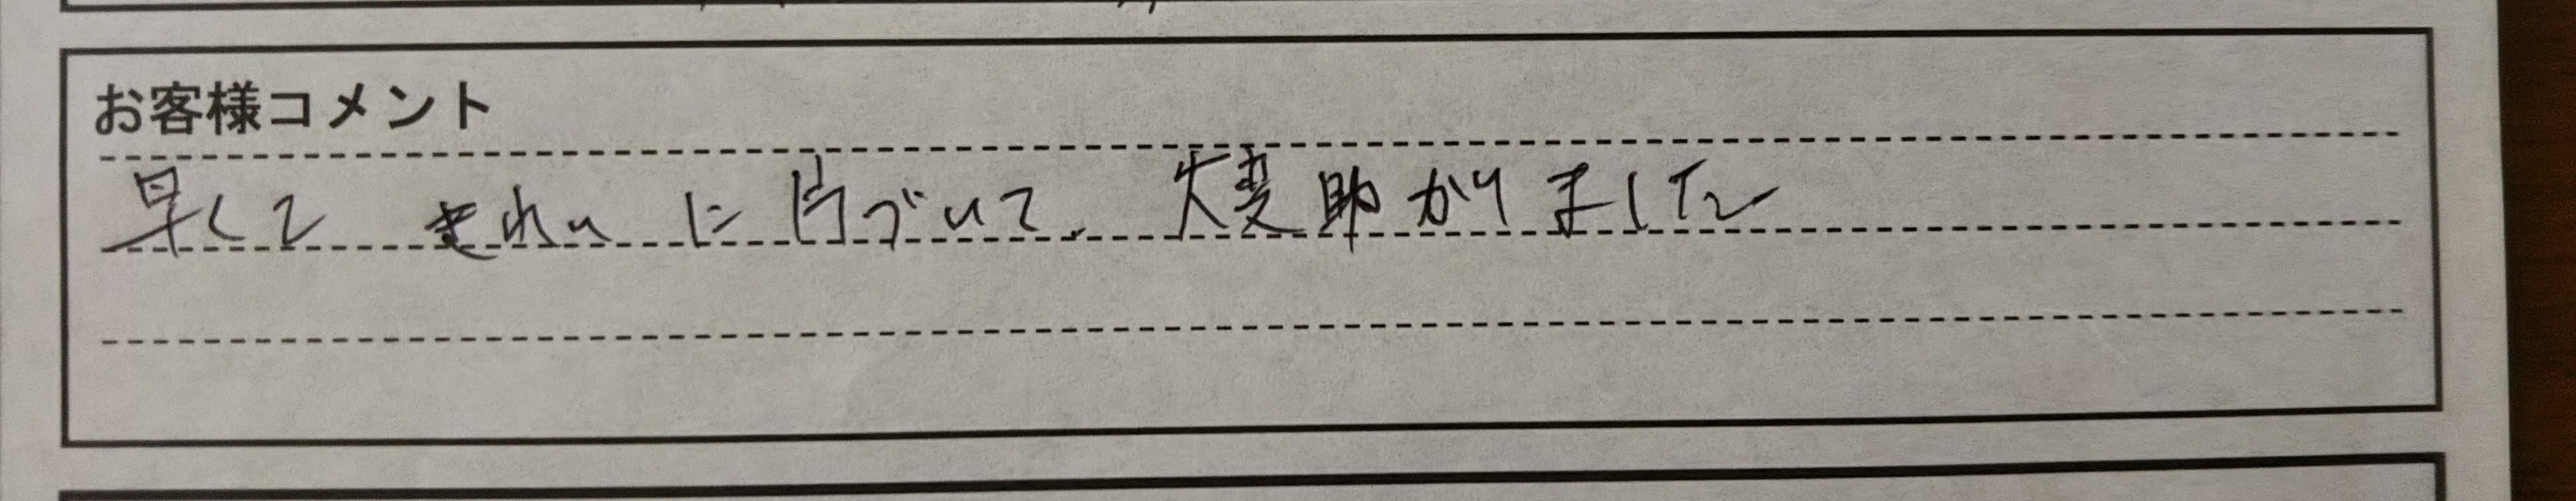 お客様コメント
早くて きれいに片づいて、大変助かりました